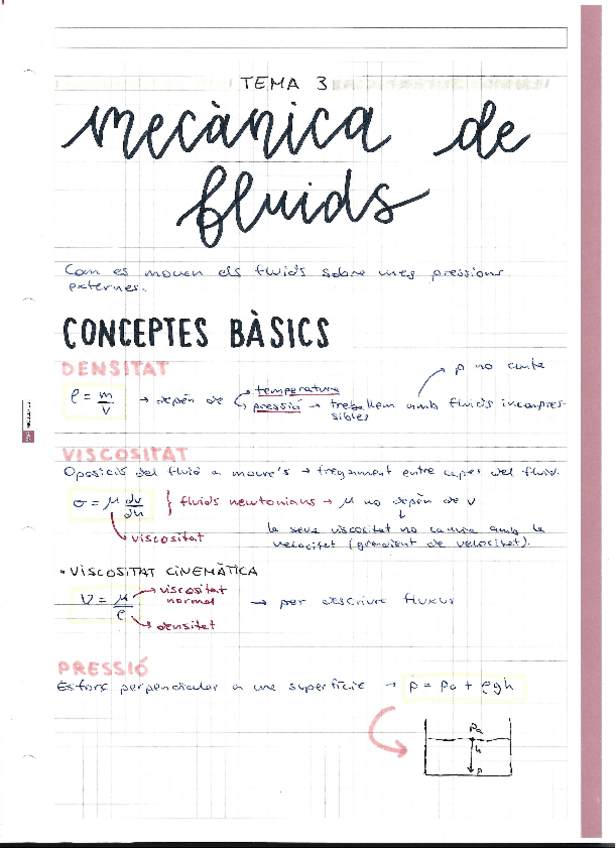 TEMA 3
mecànica de
fluids
Com es mouen els fluids sobre unes pressions
externes.
CONCEPTES BÀSICS
DENSITAT
ρ = m/V → depèn de temperatura
pressió → treballem amb fluids incompres-
sibles
ρ no canvia
VISCOSITAT
Oposició del fluid a moure's → fregament entre capes del fluid.
σ = μ dv/dn } fluids newtonians → μ no depèn de v
viscositat
la seva viscositat no canvia amb la
velocitat (gradient de velocitat).
• VISCOSITAT CINEMÀTICA
ν = μ/ρ → viscositat
normal
→ densitat
→ per descriure fluxos
PRESSIÓ
Esforç perpendicular a una superfície → p = p₀ + ρgh
h
p